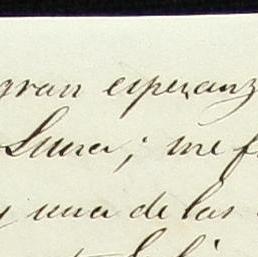 gran esperanz
Luna; me f
y una de las